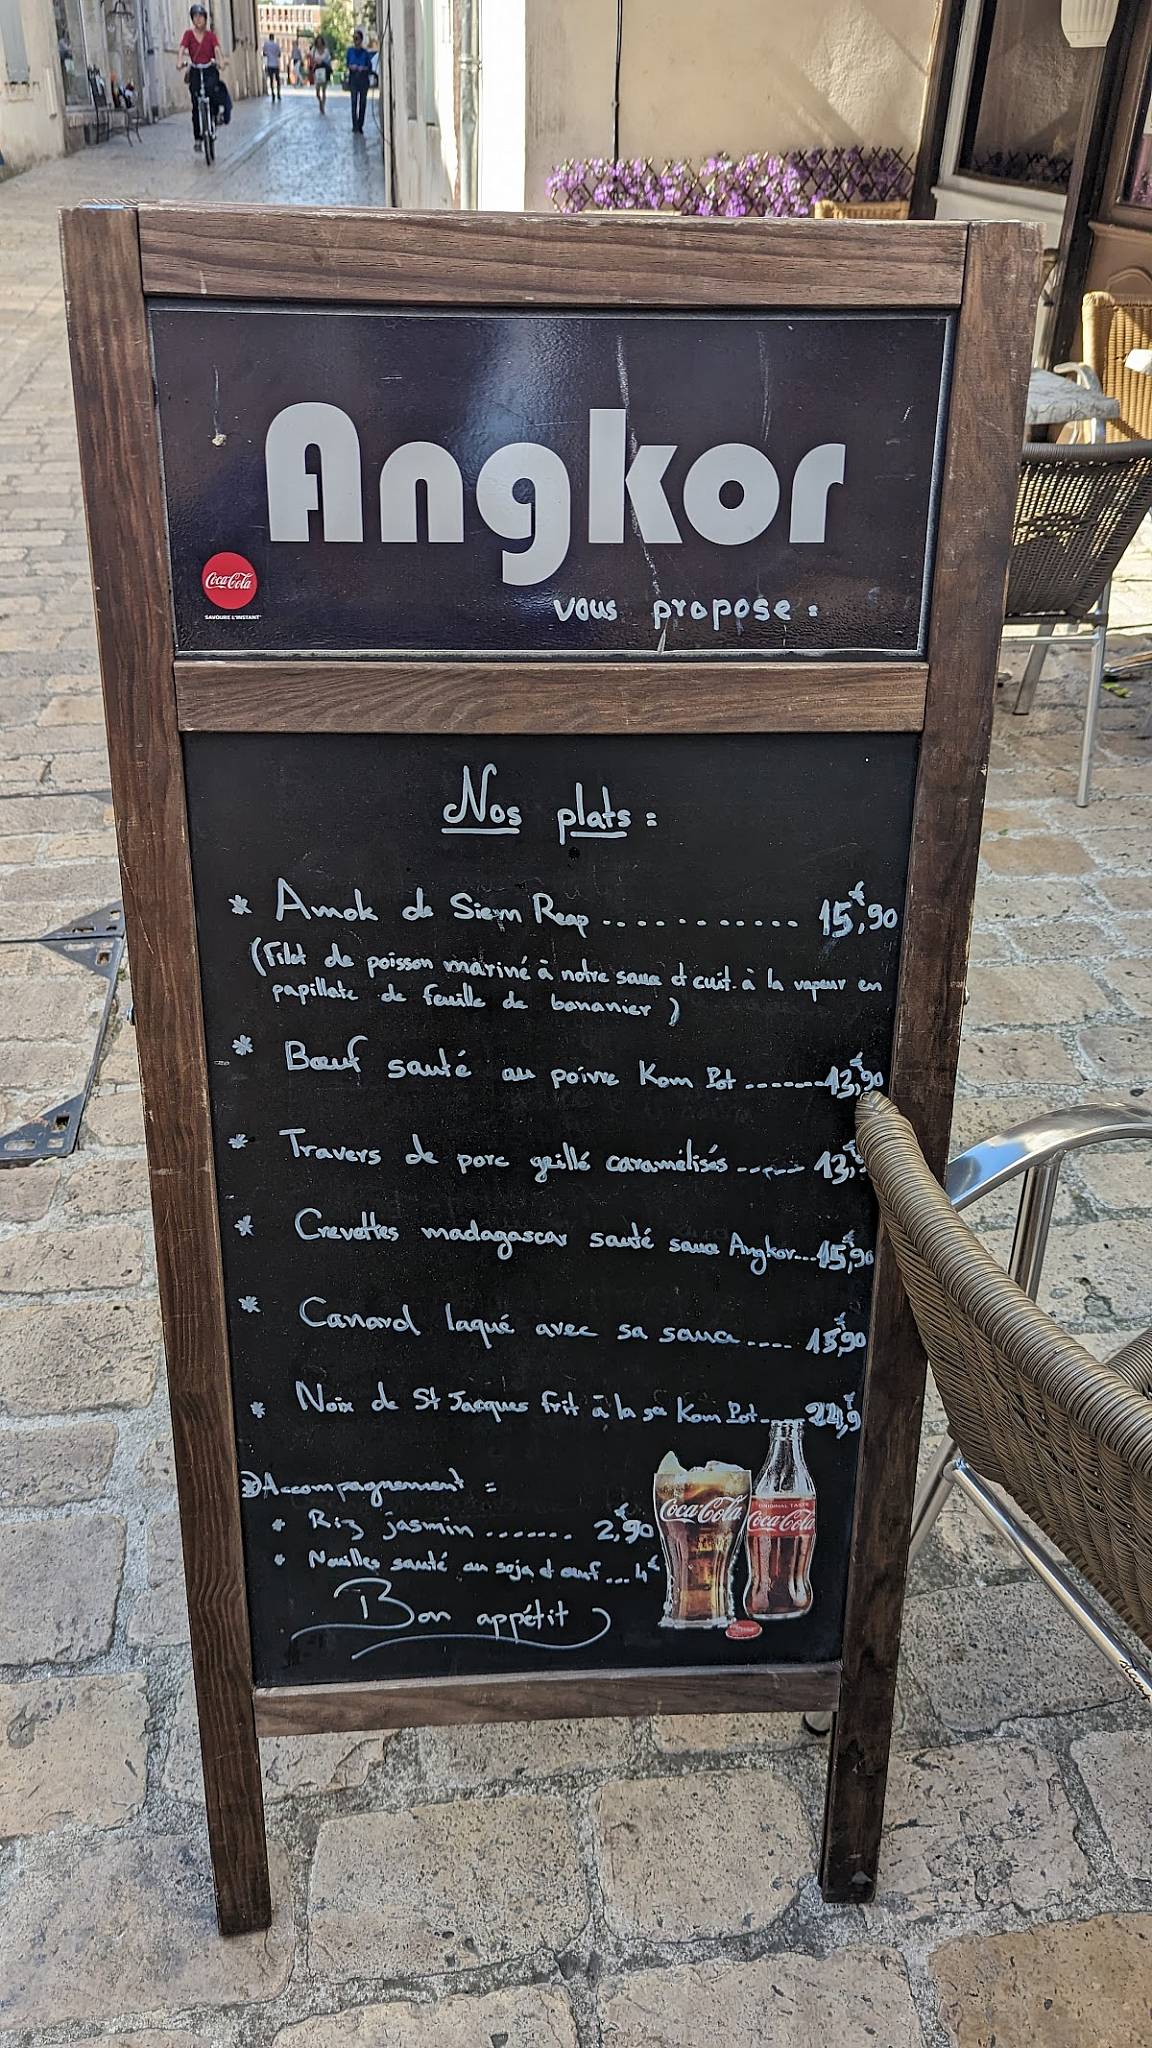 Angkor
Coca-Cola
SAVOURE L'INSTANT
vous propose :
Nos plats :
* Amok de Siem Reap ............ 15,90€
(Filet de poisson mariné à notre sauce et cuit à la vapeur en
papillate de feuille de bananier)
* Bœuf sauté au poivre Kom Pot ....... 13,90€
* Travers de porc grillé caramélisés ...... 13,
* Crevettes madagascar sauté sauce Angkor...15,90€
* Canard laqué avec sa sauce .... 15,90€
* Noix de St Jacques frit à la Kom Pot....
Accompagnement :
* Riz jasmin ....... 2,90€
* Nouilles sauté au soja et œuf ... 4€
Bon appétit
Coca-Cola
ORIGINAL TASTE
Coca-Cola